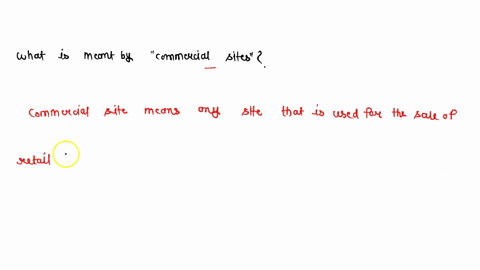 what is meant by "commercial sites"?
commercial site means any site that is used for the sale of
retail